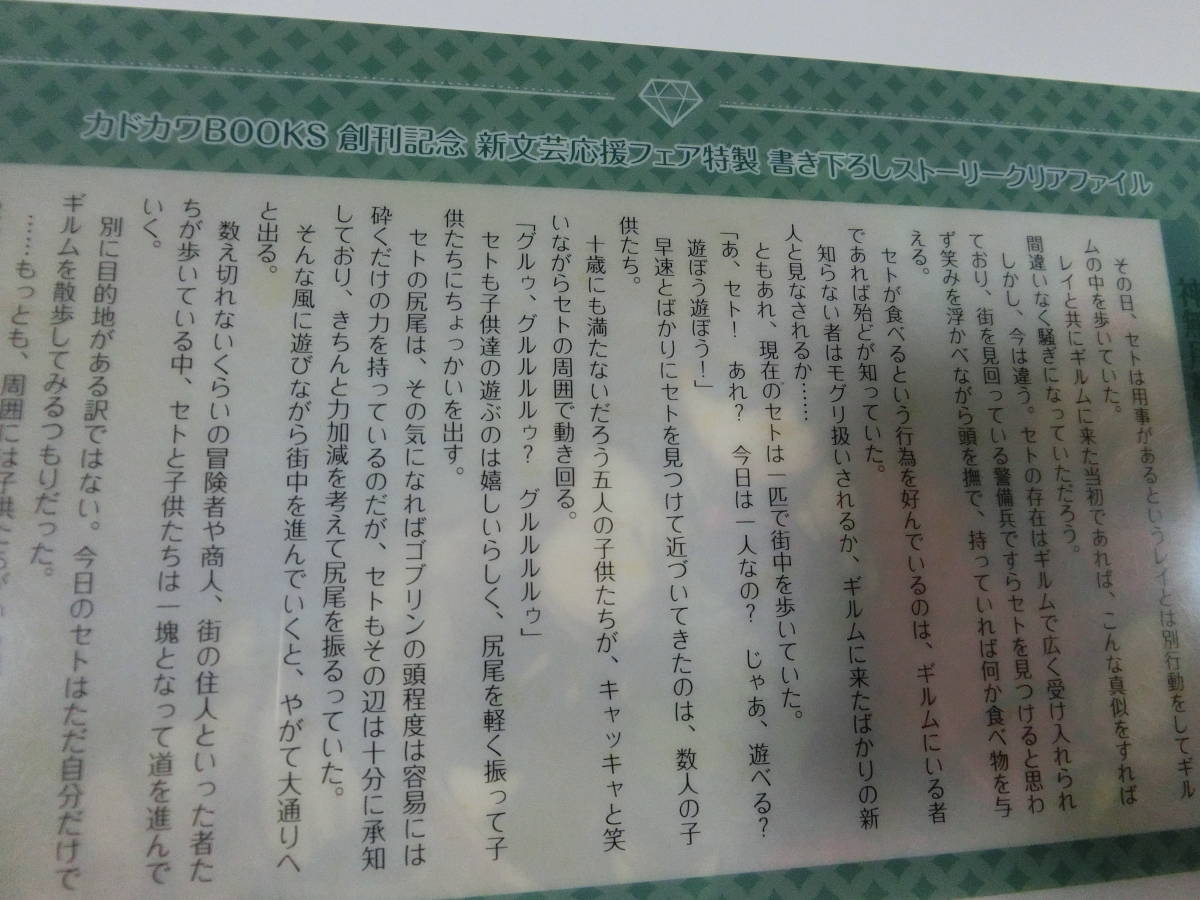 カドカワBOOKS 創刊記念 新文芸応援フェア特製 書き下ろしストーリークリアファイル
その日、セトは用事があるというレイとは別行動をしてギル
ムの中を歩いていた。
レイと共にギルムに来た当初であれば、こんな真似をすれば
間違いなく騒ぎになっていただろう。
しかし、今は違う。セトの存在はギルムで広く受け入れられ
ており、街を見回っている警備兵ですらセトを見つけると思わ
ず笑みを浮かべながら頭を撫で、持っていれば何か食べ物を与
える。
セトが食べるという行為を好んでいるのは、ギルムにいる者
であれば殆どが知っていた。
知らない者はモグリ扱いされるか、ギルムに来たばかりの新
人と見なされるか……
ともあれ、現在のセトは一匹で街中を歩いていた。
「あ、セト！　あれ？　今日は一人なの？　じゃあ、遊べる？
遊ぼう遊ぼう！」
早速とばかりにセトを見つけて近づいてきたのは、数人の子
供たち。
十歳にも満たないだろう五人の子供たちが、キャッキャと笑
いながらセトの周囲で動き回る。
「グルゥ、グルルルルゥ？　グルルルルゥ」
セトも子供達の遊ぶのは嬉しいらしく、尻尾を軽く振って子
供たちにちょっかいを出す。
セトの尻尾は、その気になればゴブリンの頭程度は容易には
砕くだけの力を持っているのだが、セトもその辺は十分に承知
しており、きちんと力加減を考えて尻尾を振るっていた。
そんな風に遊びながら街中を進んでいくと、やがて大通りへ
と出る。
数え切れないくらいの冒険者や商人、街の住人といった者た
ちが歩いている中、セトと子供たちは一塊となって道を進んで
いく。
別に目的地がある訳ではない。今日のセトはただ自分だけで
ギルムを散歩してみるつもりだった。
……もっとも、周囲には子供たちが